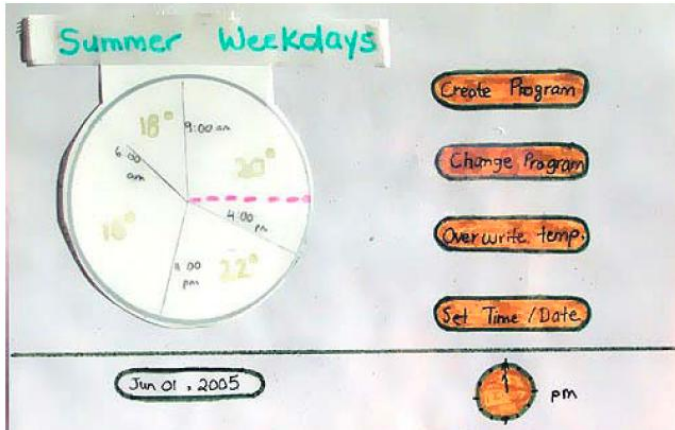 Summer Weekdays
18°
9:00 am
6:00
am
20°
4:00
pm
22°
pm
Create Program
Change Program
Overwrite temp.
Set Time / Date
Jun 01, 2005
pm